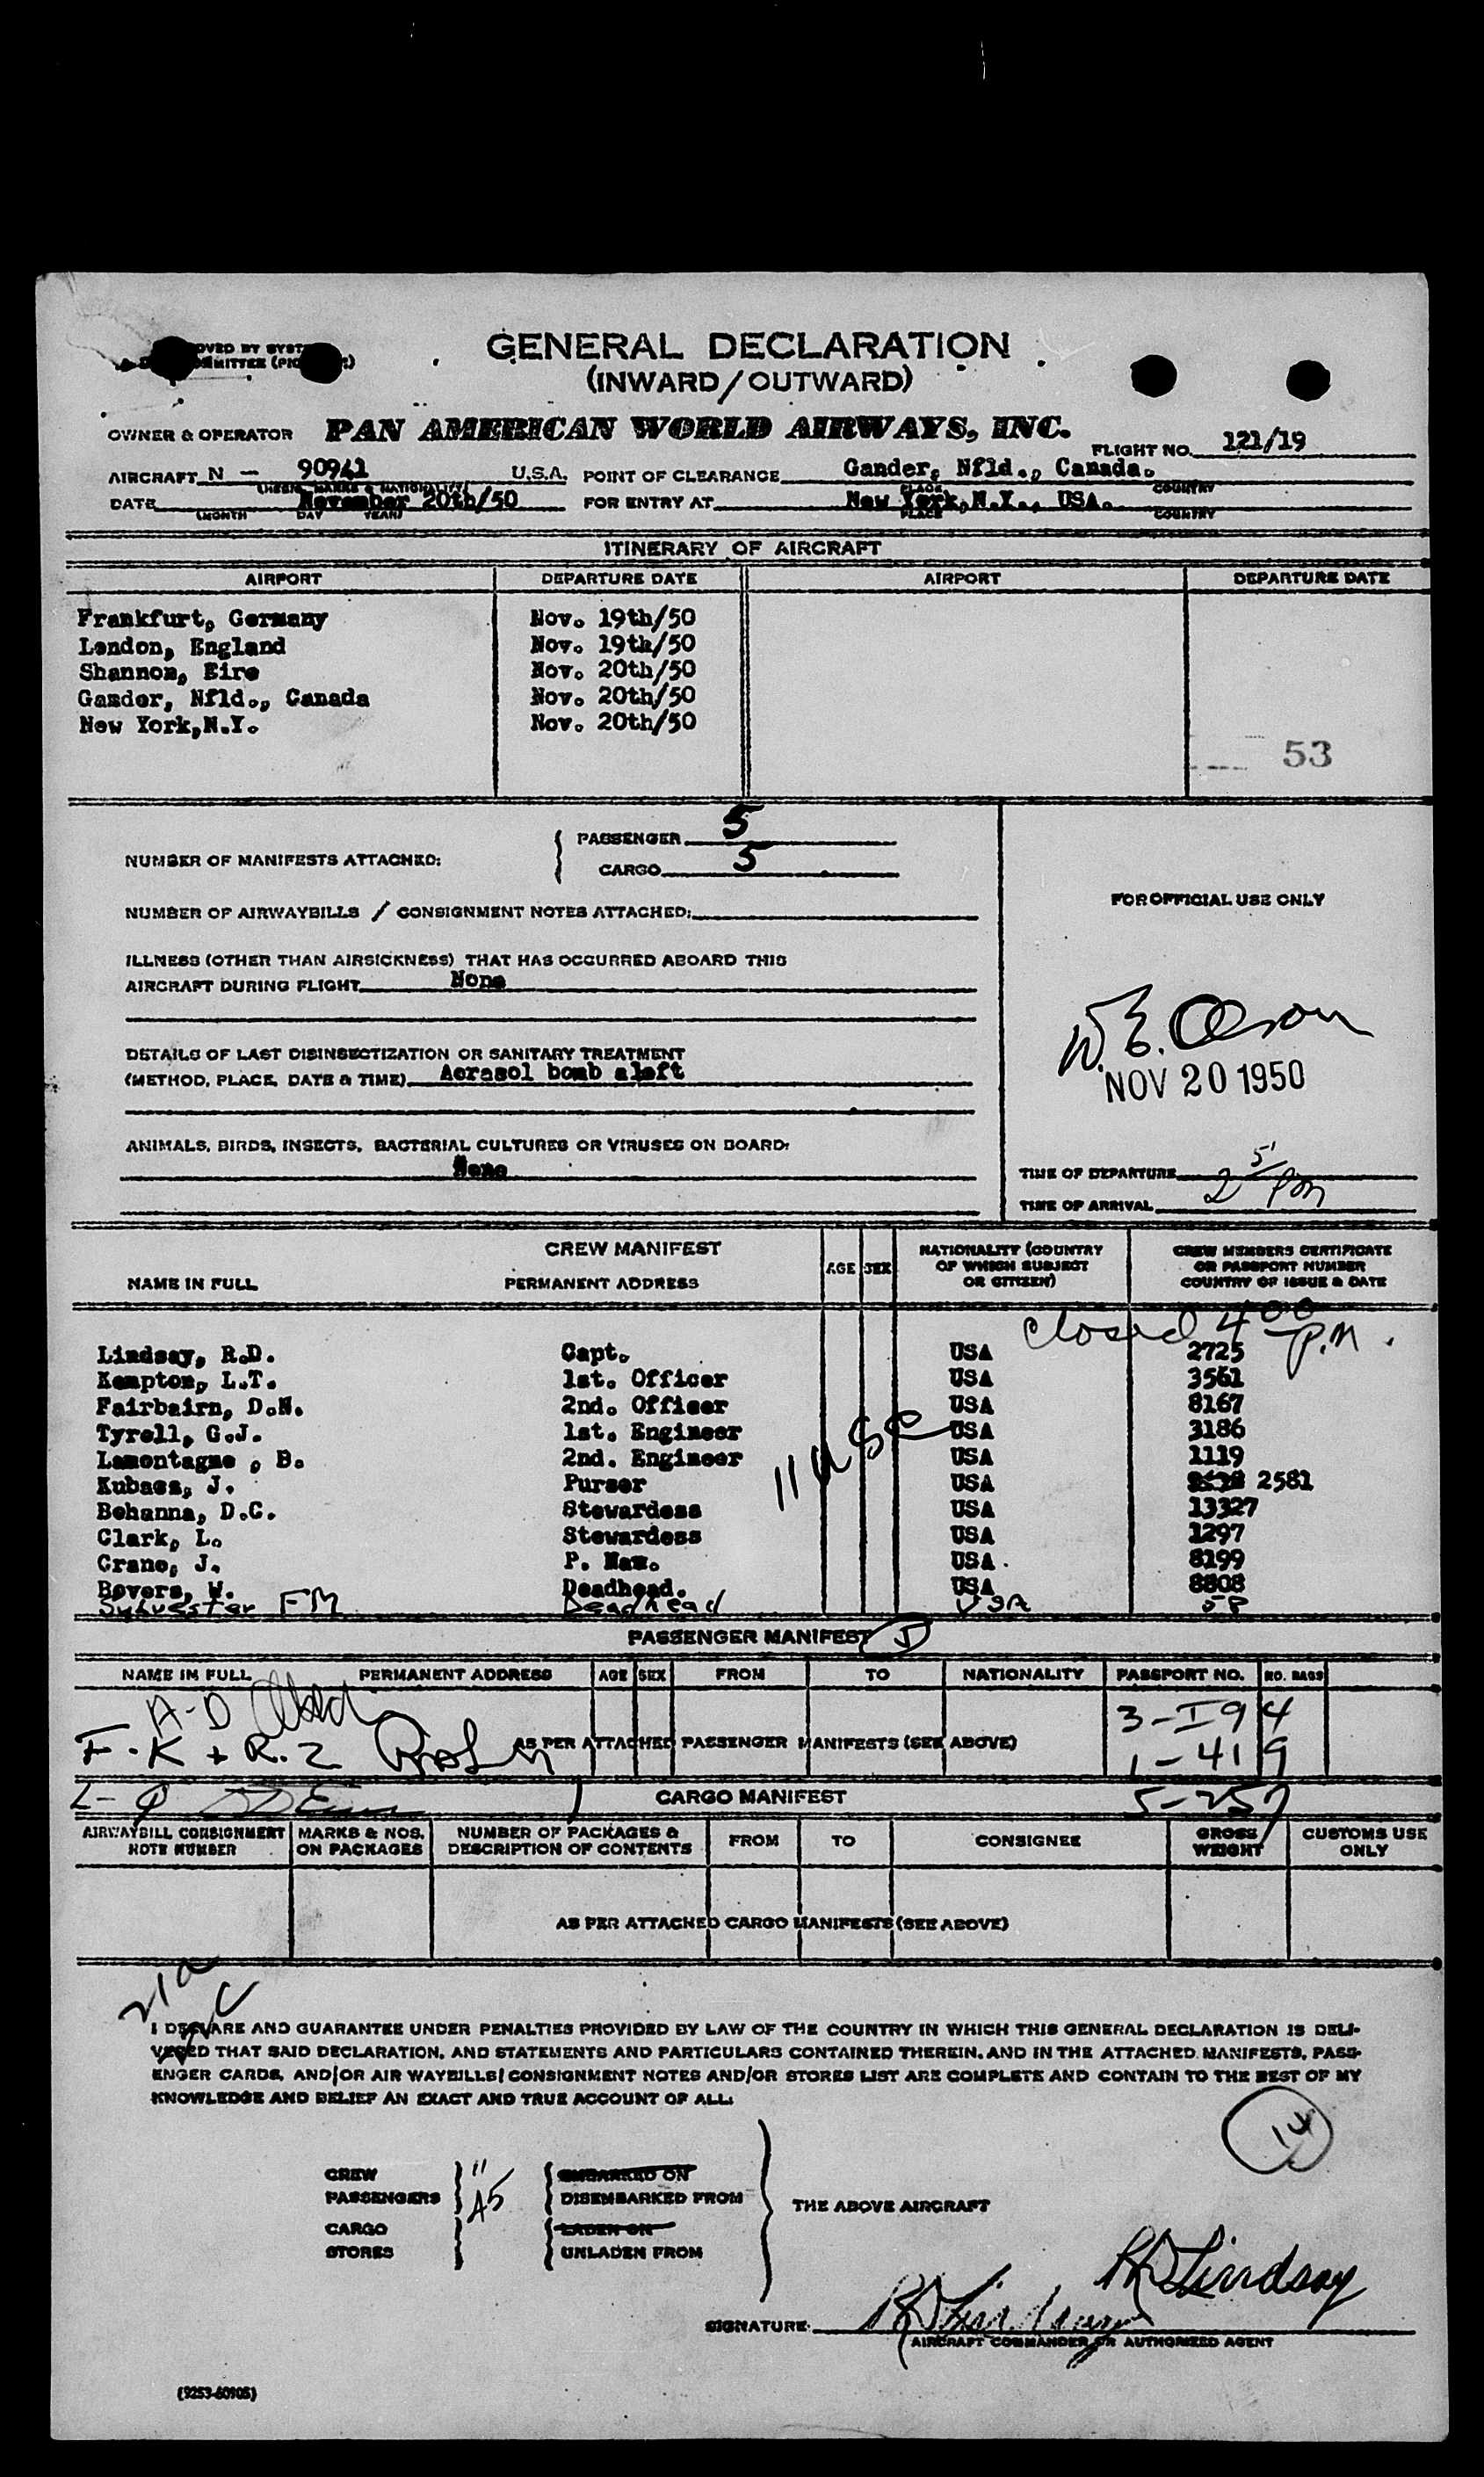 GENERAL DECLARATION
(INWARD/OUTWARD)
OWNER & OPERATOR PAN AMERICAN WORLD AIRWAYS, INC. FLIGHT NO. 121/19
AIRCRAFT N - 90941 U.S.A. POINT OF CLEARANCE Gander, Nfld., Canada.
PLACE COUNTRY
DATE November 20th/50 FOR ENTRY AT New York,N.Y., USA.
(MONTH DAY YEAR) PLACE COUNTRY
ITINERARY OF AIRCRAFT
AIRPORT DEPARTURE DATE AIRPORT DEPARTURE DATE
Frankfurt, Germany Nov. 19th/50
London, England Nov. 19th/50
Shannon, Eire Nov. 20th/50
Gander, Nfld., Canada Nov. 20th/50
New York,N.Y. Nov. 20th/50
53
NUMBER OF MANIFESTS ATTACHED: PASSENGER 5
CARGO 5
NUMBER OF AIRWAYBILLS / CONSIGNMENT NOTES ATTACHED:
FOR OFFICIAL USE ONLY
ILLNESS (OTHER THAN AIRSICKNESS) THAT HAS OCCURRED ABOARD THIS
AIRCRAFT DURING FLIGHT None
W. E. Olson
NOV 20 1950
DETAILS OF LAST DISINSECTIZATION OR SANITARY TREATMENT
(METHOD, PLACE, DATE & TIME) Aerasol bomb aloft
ANIMALS, BIRDS, INSECTS, BACTERIAL CULTURES OR VIRUSES ON BOARD:
None
TIME OF DEPARTURE
TIME OF ARRIVAL 2 51 Pm
CREW MANIFEST
NAME IN FULL PERMANENT ADDRESS AGE SEX NATIONALITY (COUNTRY OF WHICH SUBJECT OR CITIZEN) CREW MEMBERS CERTIFICATE OR PASSPORT NUMBER COUNTRY OF ISSUE & DATE
closed 4 00 P.M.
Lindsay, R.D. Capt. USA 2725
Kempton, L.T. 1st. Officer USA 3561
Fairbairn, D.N. 2nd. Officer USA 8167
Tyrell, G.J. 1st. Engineer USA 3186
Lamontagne , B. 2nd. Engineer USA 1119
11 USC
Kubacs, J. Purser USA 2581
Behanna, D.C. Stewardess USA 13327
Clark, L. Stewardess USA 1297
Crane, J. P. Nav. USA. 8199
Bovers, W. Deadhead. USA 8808
Sylvester FM Deadhead USA
PASSENGER MANIFEST
NAME IN FULL PERMANENT ADDRESS AGE SEX FROM TO NATIONALITY PASSPORT NO. NO. BAGS
A-D 3-I94
F-K + R-Z AS PER ATTACHED PASSENGER MANIFESTS (SEE ABOVE) 1-419
5-257
CARGO MANIFEST
AIRWAYBILL CONSIGNMENT NOTE NUMBER MARKS & NOS. ON PACKAGES NUMBER OF PACKAGES & DESCRIPTION OF CONTENTS FROM TO CONSIGNEE GROSS WEIGHT CUSTOMS USE ONLY
AS PER ATTACHED CARGO MANIFESTS (SEE ABOVE)
I DECLARE AND GUARANTEE UNDER PENALTIES PROVIDED BY LAW OF THE COUNTRY IN WHICH THIS GENERAL DECLARATION IS DELI-
VERED THAT SAID DECLARATION, AND STATEMENTS AND PARTICULARS CONTAINED THEREIN, AND IN THE ATTACHED MANIFESTS, PASS-
ENGER CARDS, AND/OR AIR WAYBILLS/CONSIGNMENT NOTES AND/OR STORES LIST ARE COMPLETE AND CONTAIN TO THE BEST OF MY
KNOWLEDGE AND BELIEF AN EXACT AND TRUE ACCOUNT OF ALL:
14
CREW 11 EMBARKED ON
PASSENGERS 45 DISEMBARKED FROM THE ABOVE AIRCRAFT
CARGO LADEN ON
STORES UNLADEN FROM
RD Lindsay
SIGNATURE: RD Lindsay
AIRCRAFT COMMANDER OR AUTHORIZED AGENT
(9253-60905)